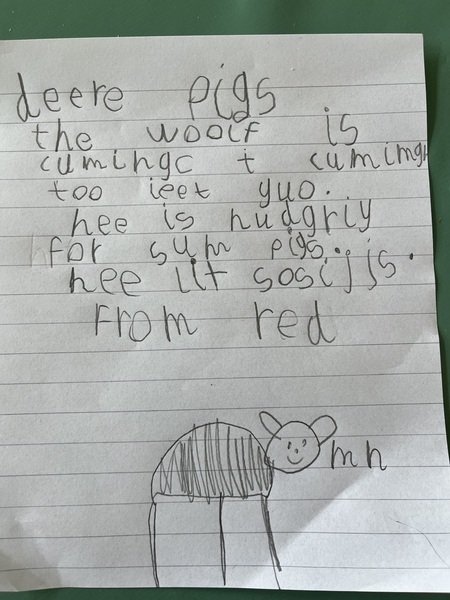 deere pigs
the woolf is
cumingc t cumimgh
too ieet yuo.
hee is hudgriy
for sum pigs.
hee lit sosijjs.
From red
mn